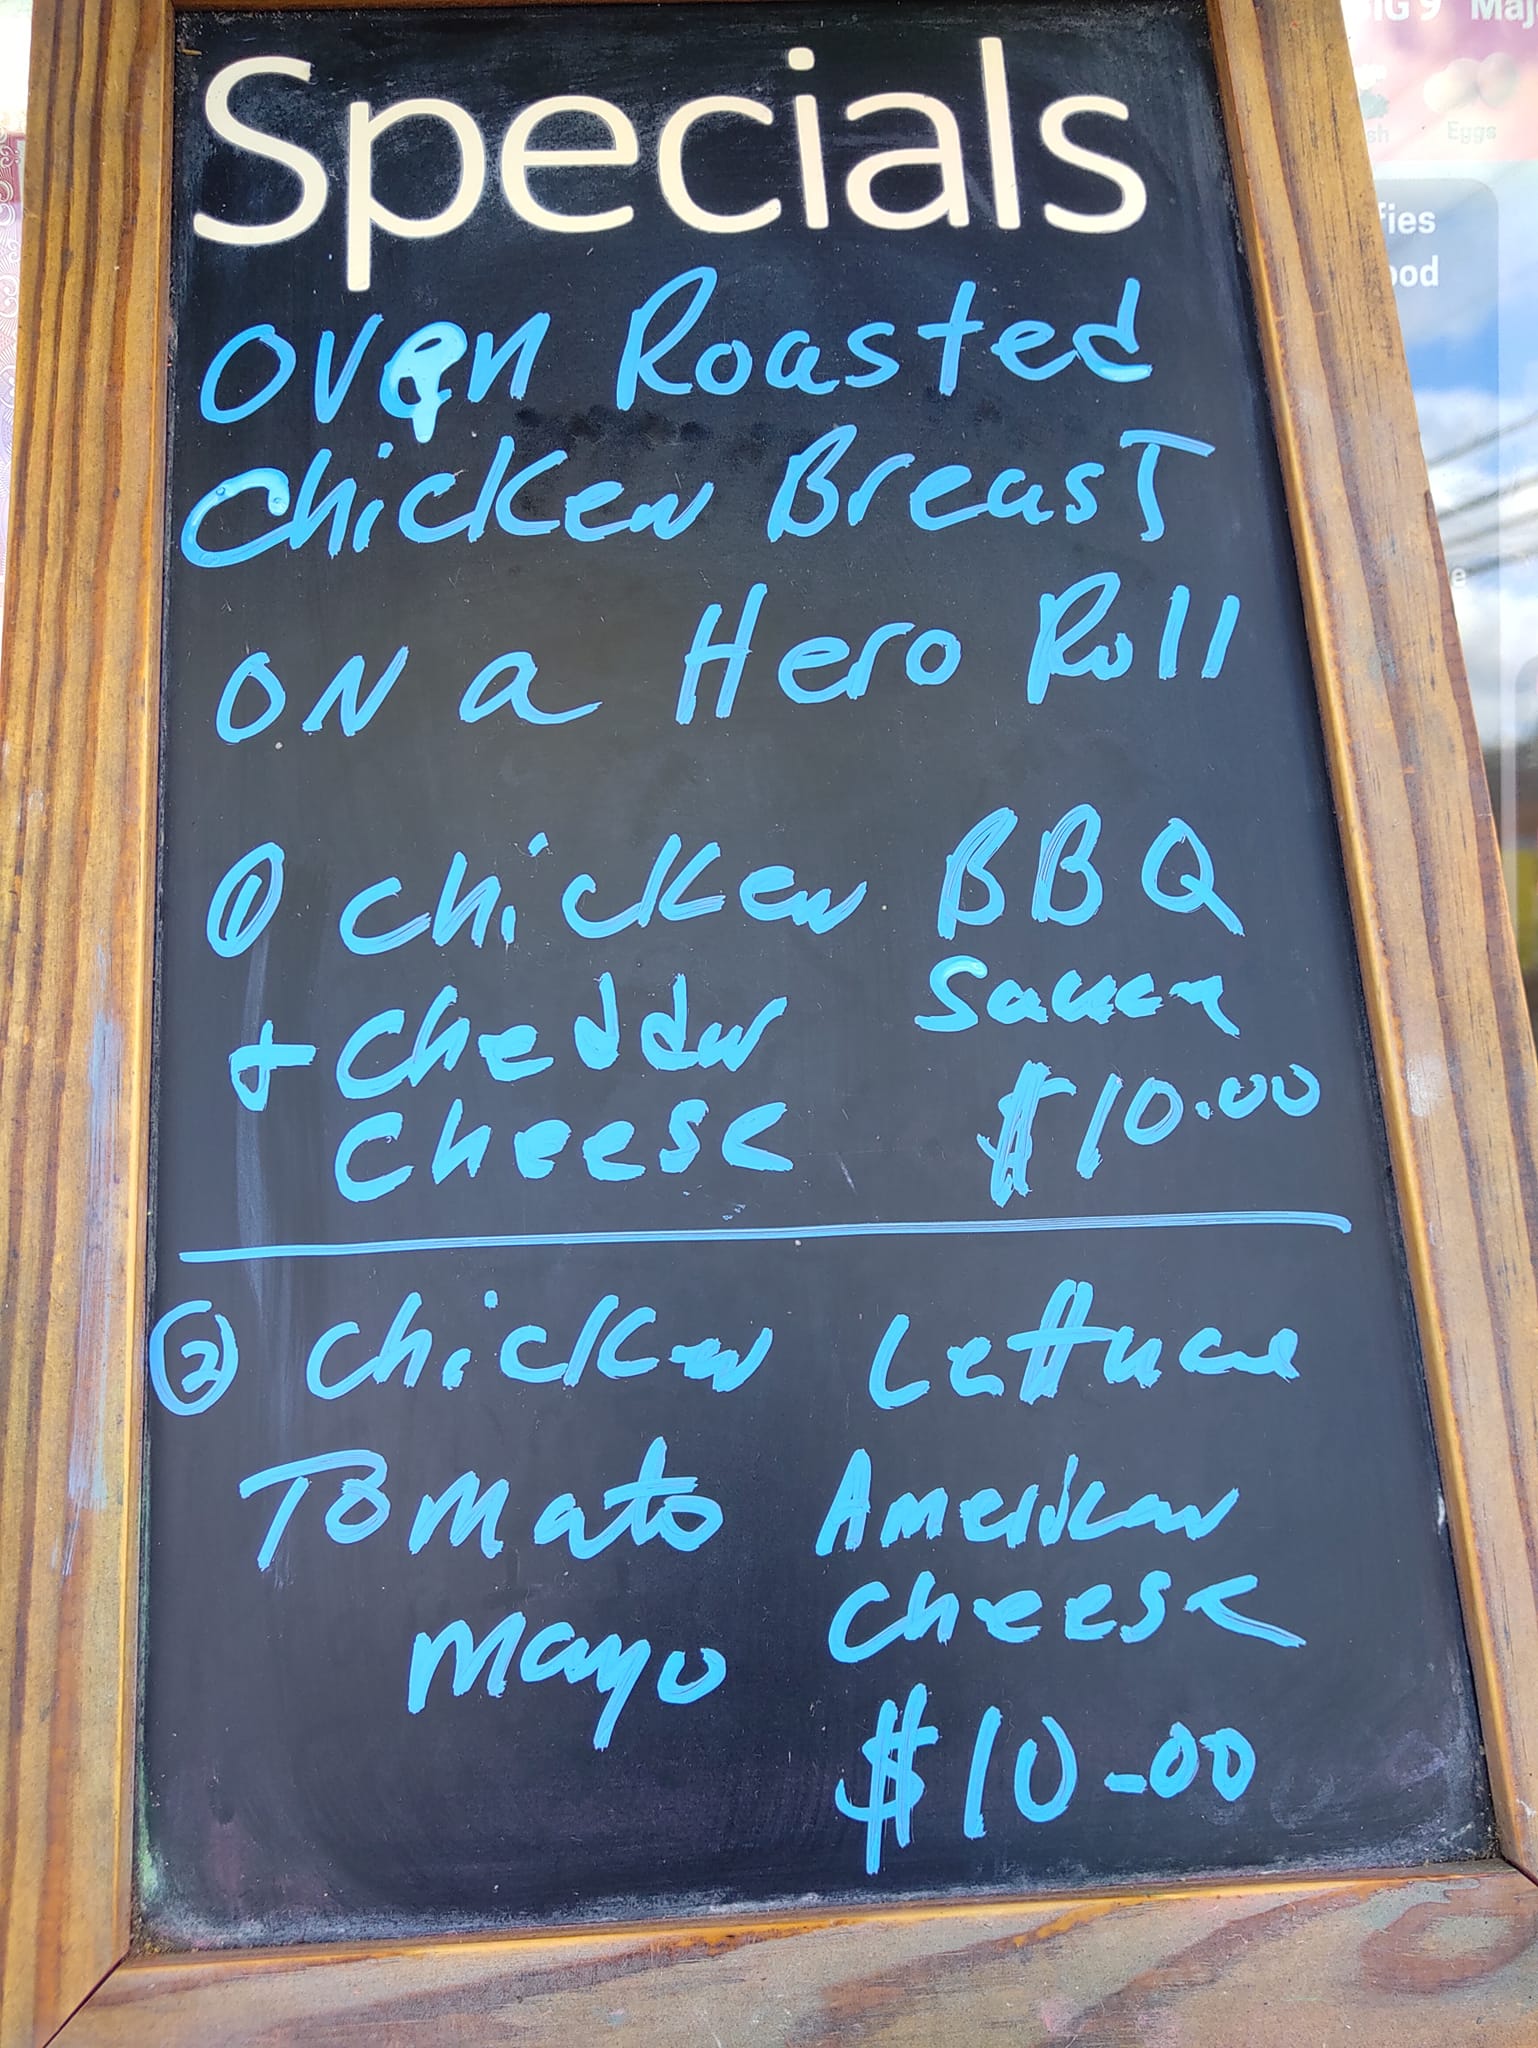 Specials
Oven Roasted
Chicken Breast
ON a Hero Roll
① Chicken BBQ
Sauce
+ Cheddar
Cheese $10.00
② Chicken Lettuce
Tomato American
Mayo Cheese
$10.00
IG 9 Maj
sh Eggs
fies
ood
e